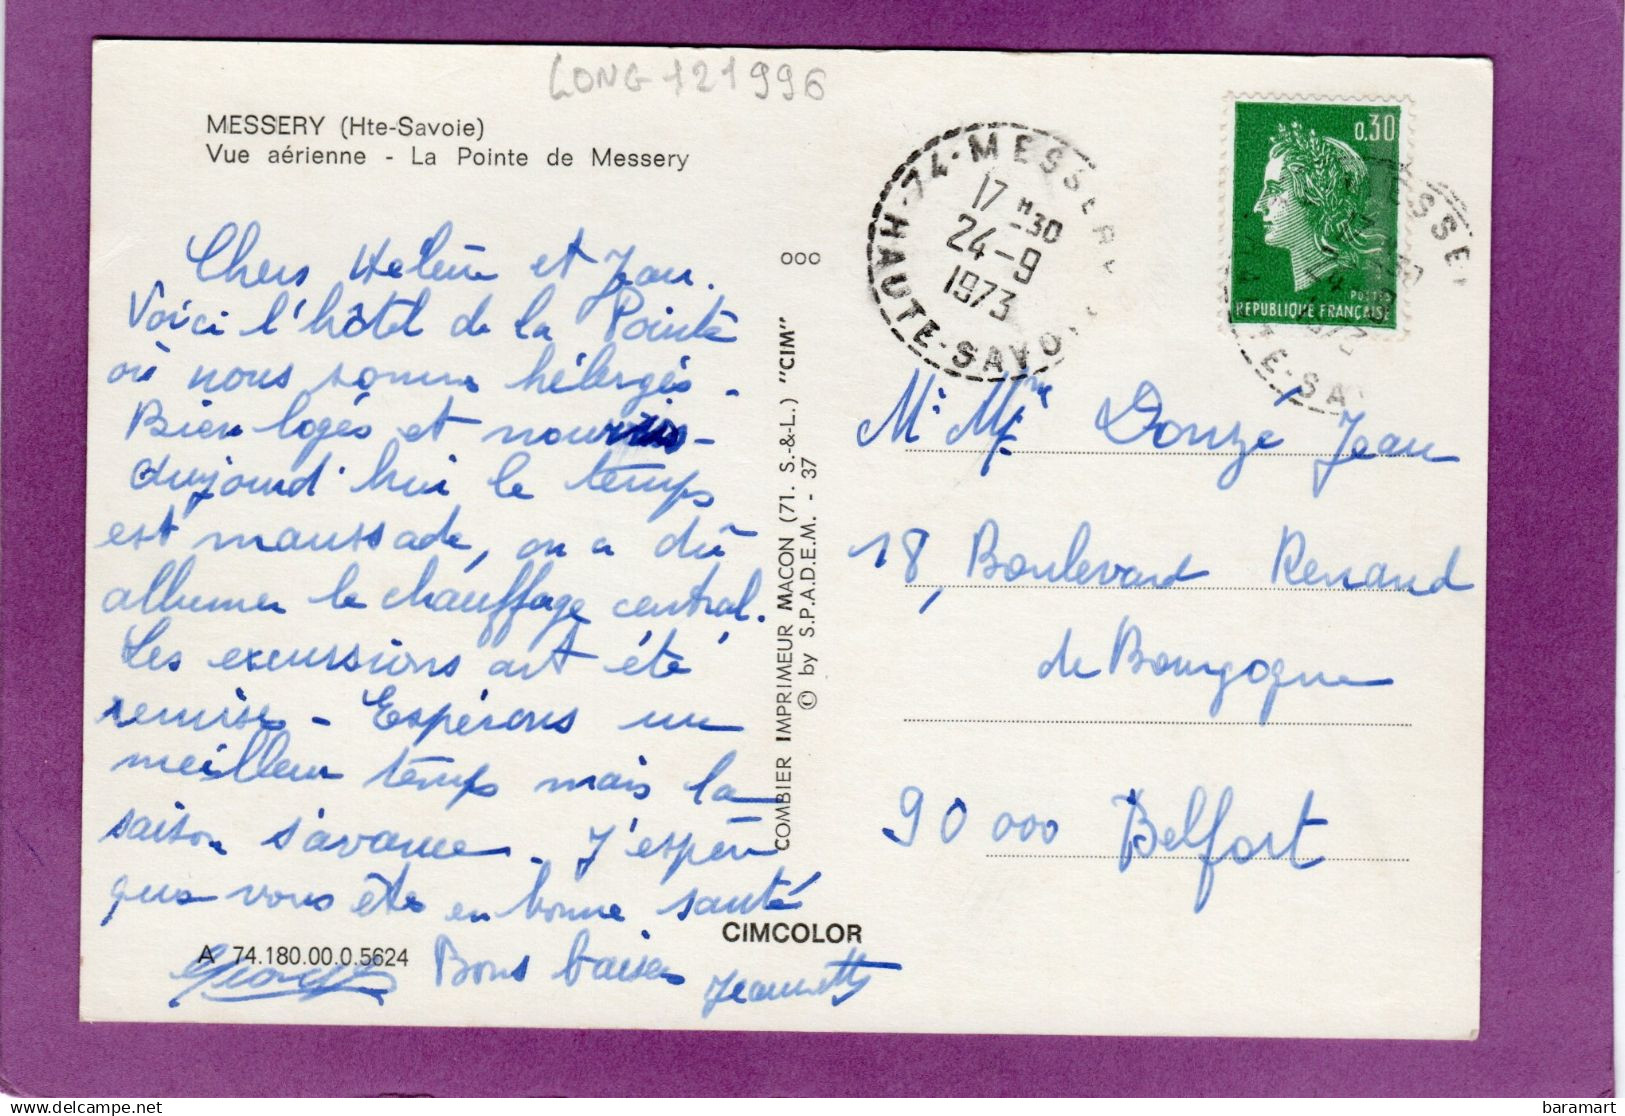 LONG 121996
MESSERY (Hte-Savoie)
Vue aérienne - La Pointe de Messery
Chers Hélène et Jean.
Voici l'hôtel de la Pointe
où nous somme hébergés -
Bien logés et nourris -
Aujourd'hui le temps
est maussade, on a dû
allumer le chauffage central.
Les excursions ont été
remise - Espérons un
meilleur temps mais la
saison s'avance. J'espère
que vous êtes en bonne santé
Bons baisers
Jeannette
A 74.180.00.0.5624
CIMCOLOR
000
COMBIER IMPRIMEUR MACON (71. S.-&-L.) "CIM"
© by S.P.A.D.E.M. - 37
74-MESSERY
17 H30
24-9
1973
HAUTE-SAVOIE
0,30
POSTES
REPUBLIQUE FRANÇAISE
Mr Mme Donzé Jean
18, Boulevard Renaud
de Bourgogne
90 000 Belfort
delcampe.net
baramart